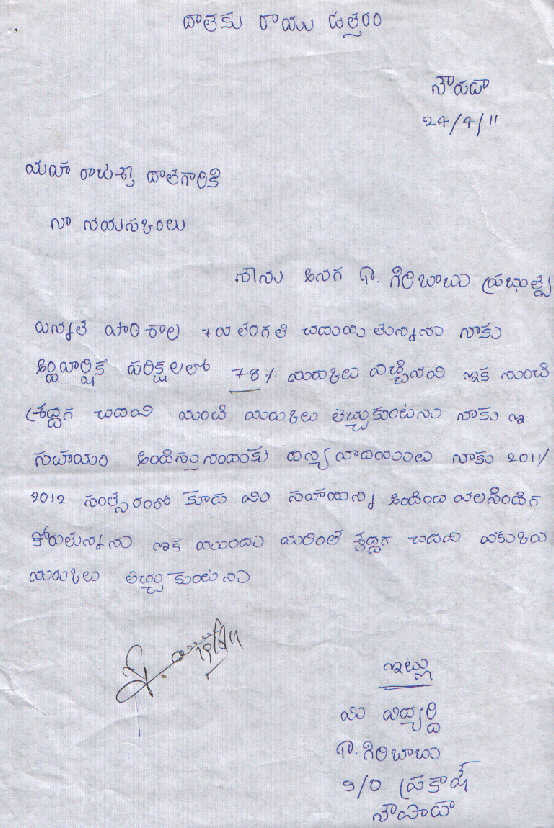 దాతకు రాయు ఉత్తరం
నౌపడా
24/9/11
మహా రాజశ్రీ దాతగారికి
నా నమస్కారంలు
నేను అనగ గా. గిరిబాబు ప్రభుత్వ
ఉన్నత పాఠశాల 7వ తరగతి చదువుతున్నాను నాకు
అర్ధవార్షిక పరీక్షలలో 78% మార్కులు వచ్చినవి ఇక నుంచి
శ్రద్దగ చదివి మంచి మార్కులు తెచ్చుకుంటాను నాకు ఇ
సహాయం అందిస్తునందుకు ధన్యవాదములు నాకు 2011/
2012 సంత్సరంలో కూడ మీ సహాయాన్ని అందించ వలసిందిగ
కోరుతున్నాను ఇక ముందు మరింత శ్రద్దగ చదివి ఎక్కువ
మార్కులు తెచ్చుకుంటాను
19/9/11
ఇట్లు
మీ విద్యార్ధి
గా. గిరిబాబు
S/O ప్రకాష్
నౌపాడా